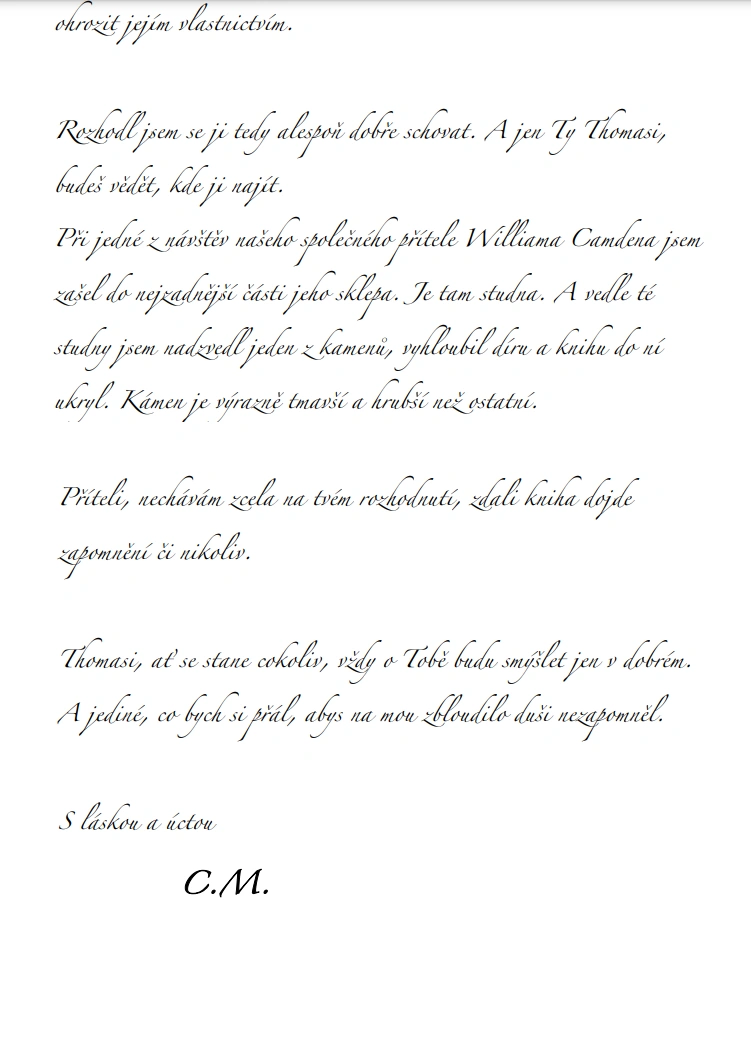 ohrozit jejím vlastnictvím.
Rozhodl jsem se ji tedy alespoň dobře schovat. A jen Ty Thomasi,
budeš vědět, kde ji najít.
Při jedné z návštěv našeho společného přítele Williama Camdena jsem
zašel do nejzadnější části jeho sklepa. Je tam studna. A vedle té
studny jsem nadzvedl jeden z kamenů, vyhloubil díru a knihu do ní
ukryl. Kámen je výrazně tmavší a hrubší než ostatní.
Příteli, nechávám zcela na tvém rozhodnutí, zdali kniha dojde
zapomnění či nikoliv.
Thomasi, ať se stane cokoliv, vždy o Tobě budu smýšlet jen v dobrém.
A jediné, co bych si přál, abys na mou zbloudilo duši nezapomněl.
S láskou a úctou
C.M.